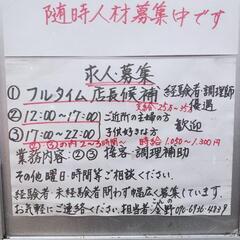 随時人材募集中です
求人募集
① フルタイム 店長候補 経験者 調理師
支給25万~35万 優遇
② 12:00~17:00 ご近所の主婦の方
③ 17:00~22:00 子供好きな方 歓迎
② ③の内2~3時間~ 時給1.050~1.300円
業務内容 ② ③ 接客 調理補助
その他曜日・時間等ご相談ください。
経験者 未経験者問わず幅広く募集しています。
お気軽にご連絡ください。担当者